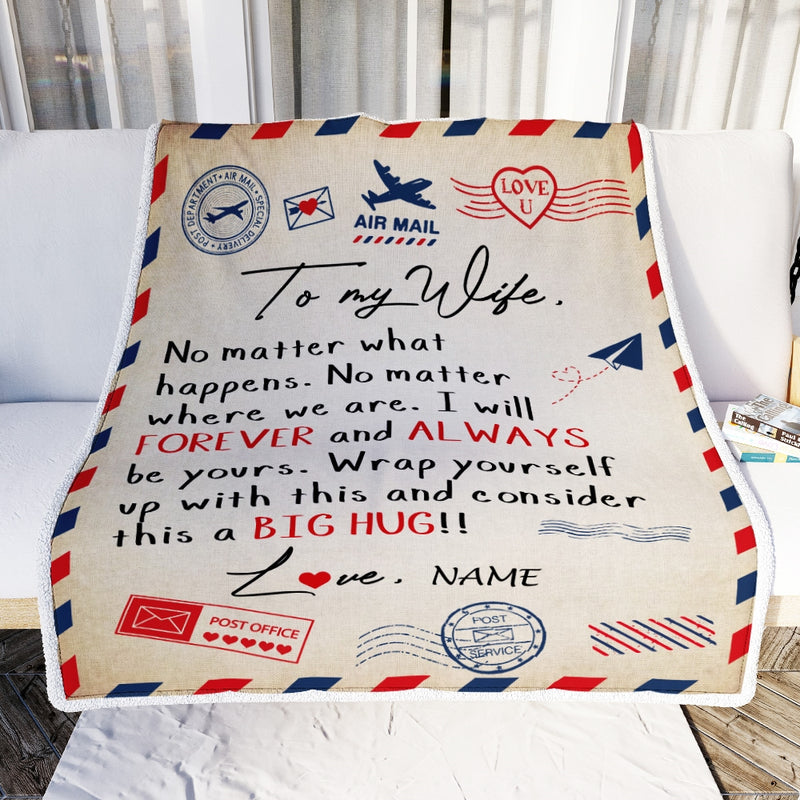 POST DEPARTMENT • AIR MAIL • SPECIAL DELIVERY •
AIR MAIL
LOVE
U
To my Wife,
No matter what
happens. No matter
where we are. I will
FOREVER and ALWAYS
be yours. Wrap yourself
up with this and consider
this a BIG HUG!!
Love, NAME
POST OFFICE
POST
SERVICE